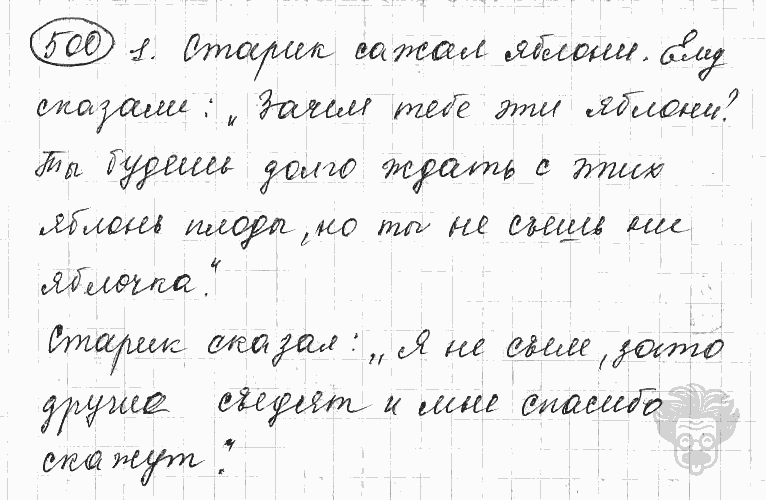 500 1. Старик сажал яблони. Ему
сказали: „Зачем тебе эти яблони?
Ты будешь долго ждать с этих
яблонь плоды, но ты не съешь ни
яблочка."
Старик сказал: „Я не съем, зато
другие съедят и мне спасибо
скажут."